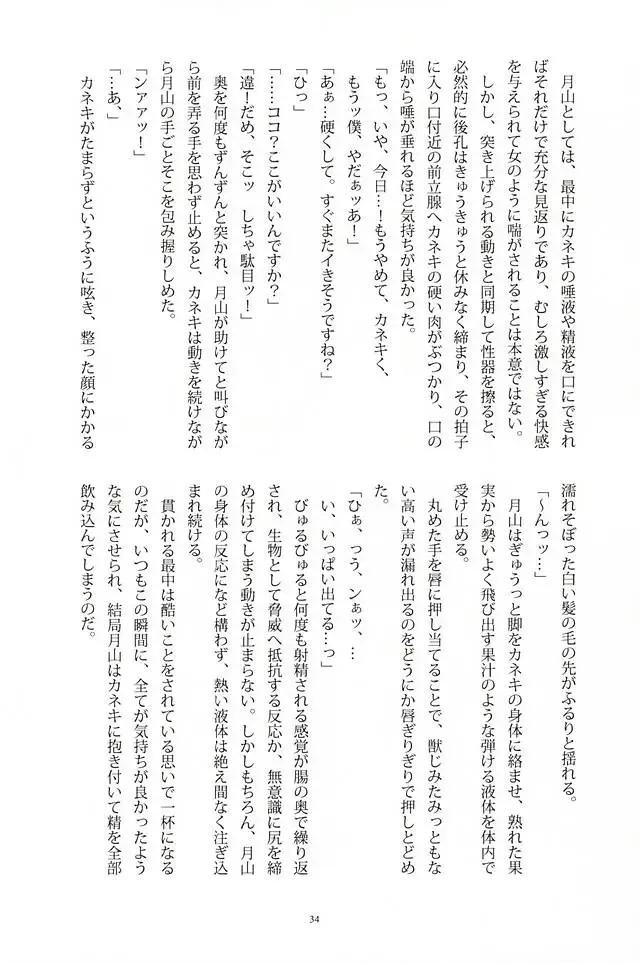 月山としては、最中にカネキの唾液や精液を口にできれ
ばそれだけで充分な見返りであり、むしろ激しすぎる快感
を与えられて女のように喘がされることは本意ではない。
しかし、突き上げられる動きと同期して性器を擦ると、
必然的に後孔はきゅうきゅうと休みなく締まり、その拍子
に入り口付近の前立腺へカネキの硬い肉がぶつかり、口の
端から唾が垂れるほど気持ちが良かった。
「もっ、いや、今日…！もうやめて、カネキく、
もうッ僕、やだぁッあ！」
「あぁ…硬くして。すぐまたイきそうですね？」
「ひっ」
「……ココ？ここがいいんですか？」
「違！だめ、そこッ　しちゃ駄目ッ！」
奥を何度もずんずんと突かれ、月山が助けてと叫びなが
ら前を弄る手を思わず止めると、カネキは動きを続けなが
ら月山の手ごとそこを包み握りしめた。
「ンァァッ！」
「…あ、」
カネキがたまらずというふうに呟き、整った顔にかかる
濡れそぼった白い髪の毛の先がふるりと揺れる。
「～んっッ…」
月山はぎゅうっと脚をカネキの身体に絡ませ、熟れた果
実から勢いよく飛び出す果汁のような弾ける液体を体内で
受け止める。
丸めた手を唇に押し当てることで、獣じみたみっともな
い高い声が漏れ出るのをどうにか唇ぎりぎりで押しとどめ
た。
「ひぁ、っう、ンぁッ、…
い、いっぱい出てる…っ」
びゅるびゅると何度も射精される感覚が腸の奥で繰り返
され、生物として脅威へ抵抗する反応か、無意識に尻を締
め付けてしまう動きが止まらない。しかしもちろん、月山
の身体の反応になど構わず、熱い液体は絶え間なく注ぎ込
まれ続ける。
貫かれる最中は酷いことをされている思いで一杯になる
のだが、いつもこの瞬間に、全てが気持ちが良かったよう
な気にさせられ、結局月山はカネキに抱き付いて精を全部
飲み込んでしまうのだ。
34